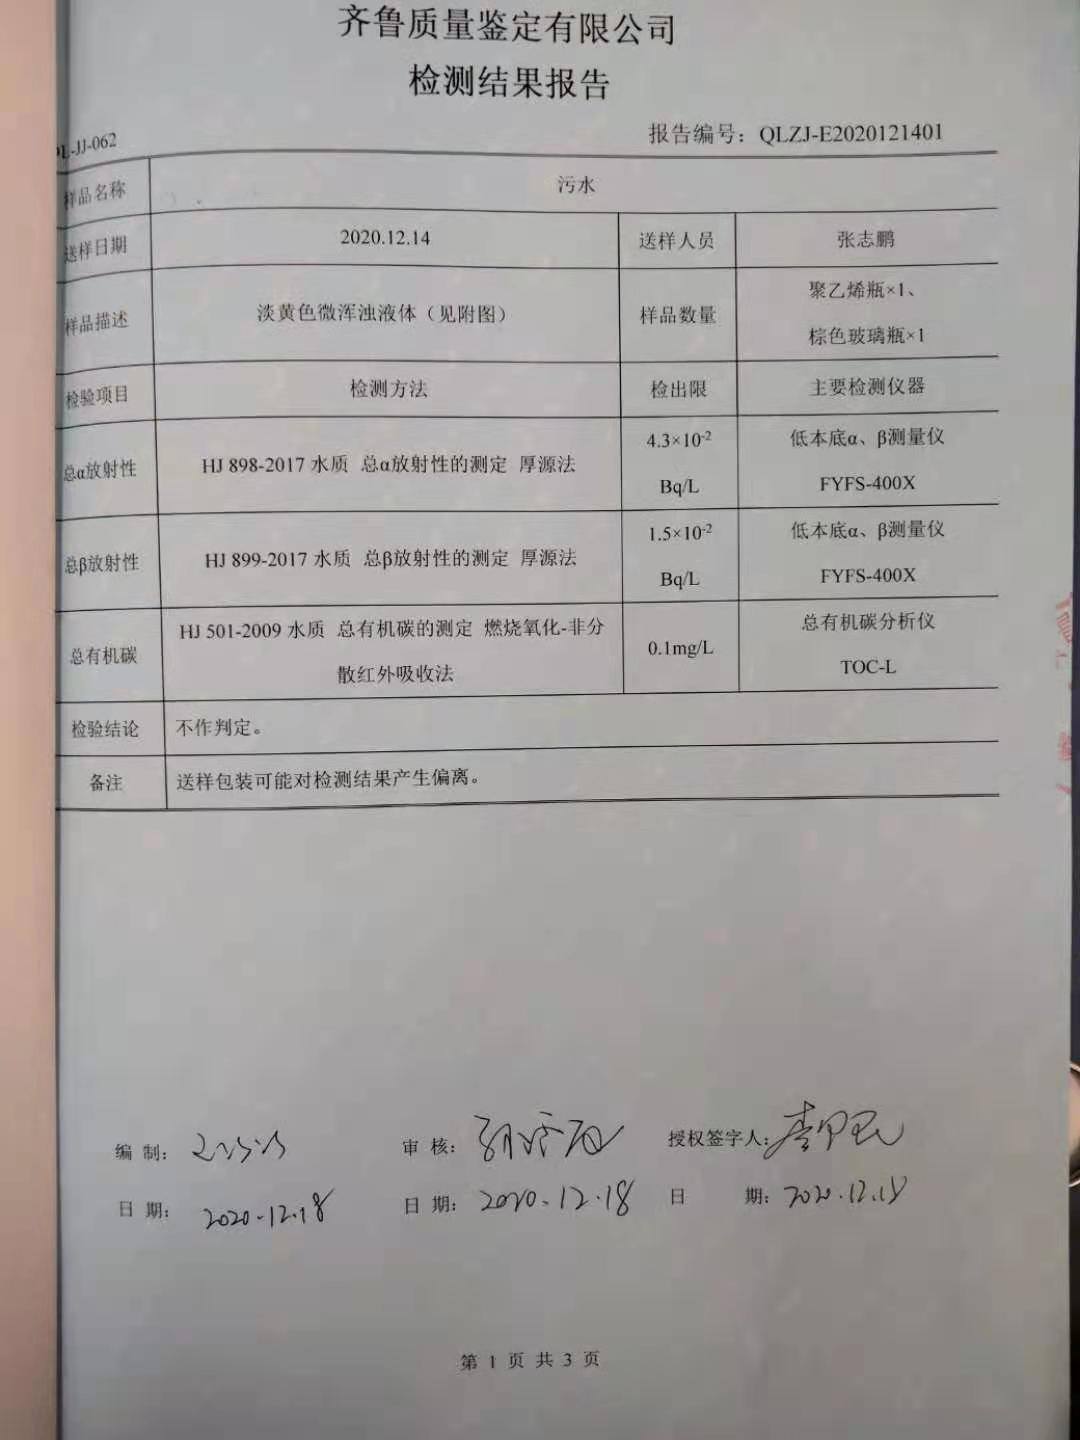 齐鲁质量鉴定有限公司
检测结果报告
L-JJ-062
报告编号：QLZJ-E2020121401
样品名称 污水
送样日期 2020.12.14 送样人员 张志鹏
样品描述 淡黄色微浑浊液体（见附图） 样品数量 聚乙烯瓶×1、
棕色玻璃瓶×1
检验项目 检测方法 检出限 主要检测仪器
总α放射性 HJ 898-2017 水质 总α放射性的测定 厚源法 4.3×10⁻² Bq/L 低本底α、β测量仪
FYFS-400X
总β放射性 HJ 899-2017 水质 总β放射性的测定 厚源法 1.5×10⁻² Bq/L 低本底α、β测量仪
FYFS-400X
总有机碳 HJ 501-2009 水质 总有机碳的测定 燃烧氧化-非分
散红外吸收法 0.1mg/L 总有机碳分析仪
TOC-L
检验结论 不作判定。
备注 送样包装可能对检测结果产生偏离。
编 制： 审 核： 授权签字人：
日 期： 2020.12.18 日 期： 2020.12.18 日 期： 2020.12.18
第 1 页 共 3 页